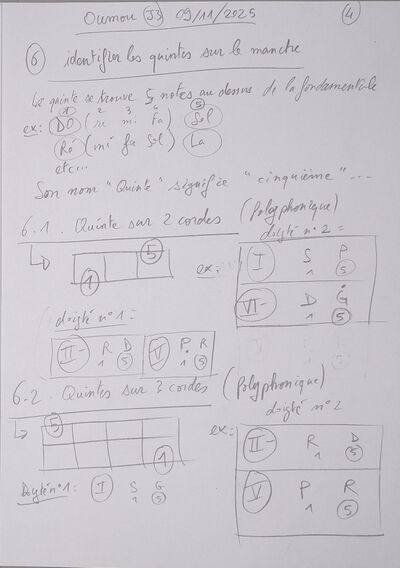 Oumou J3 09/11/2025 4
6 identifier les quintes sur le manche
La quinte se trouve 5 notes au dessus de la fondamentale
1 2 3 4 5
ex: DO (re mi Fa) Sol
Ré (mi fa Sol) La
etc...
Son nom "Quinte" signifie "cinquième"...
6.1. Quinte sur 2 cordes (Polyphonique)
doigté n°2 =
5
1
ex: I S P
1 5
VI- D G
1 5
doigté n°1 =
II- R D V P R
1 5 1 5
6.2. Quintes sur 3 cordes (Polyphonique)
doigté n°2
5
1
ex: II- R D
1 5
V P R
1 5
Doigté n°1: I S G
1 5